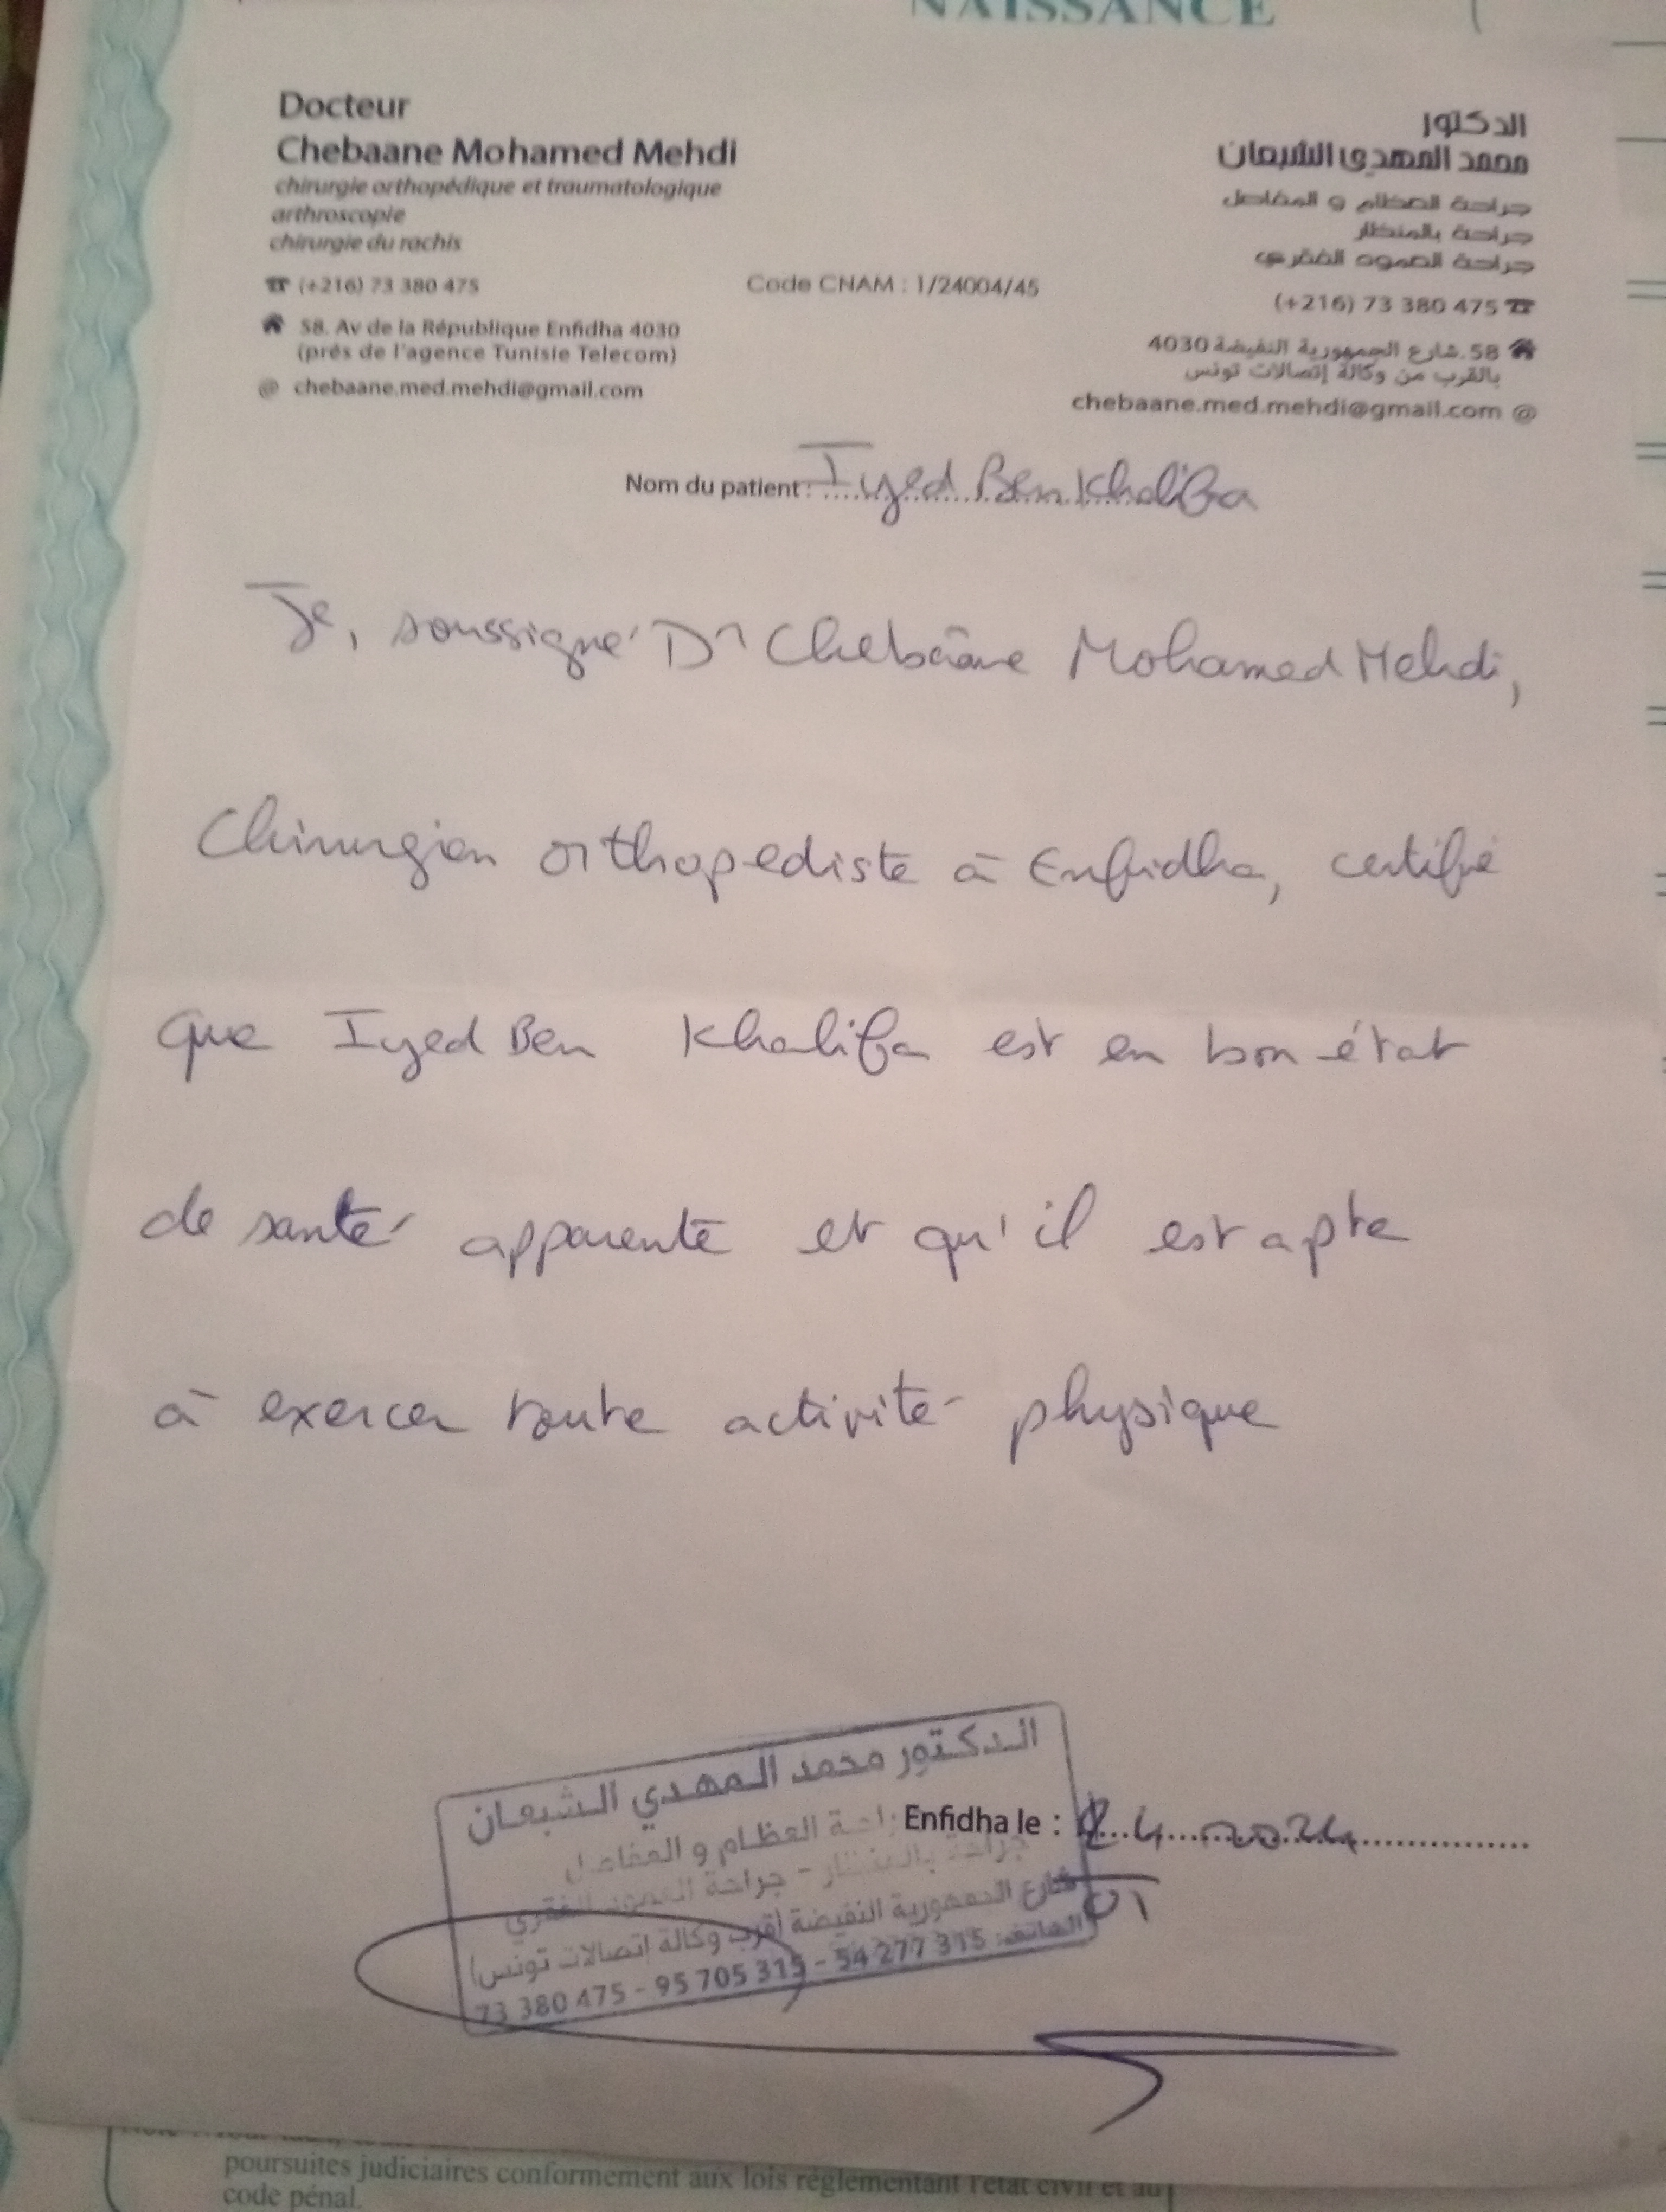 NAISSANCE
Docteur
Chebaane Mohamed Mehdi
chirurgie orthopédique et traumatologique
arthroscopie
chirurgie du rachis
☎ (+216) 73 380 475
58. Av de la République Enfidha 4030
(prés de l'agence Tunisie Telecom)
@ chebaane.med.mehdi@gmail.com
Code CNAM : 1/24004/45
الدكتور
محمد المهدي الشبعان
جراحة العظام و المفاصل
جراحة بالمنظار
جراحة العمود الفقري
(+216) 73 380 475 ☎
58.شارع الجمهورية النفيضة 4030
بالقرب من وكالة إتصالات تونس
chebaane.med.mehdi@gmail.com @
Nom du patient : Iyed Ben Khalifa
Je, soussigné Dr Chebâane Mohamed Mehdi,
Chirurgien orthopediste à Enfidha, certifie
que Iyed Ben Khalifa est en bon état
de santé apparente et qu'il est apte
à exercer toute activité physique
الدكتور محمد المهدي الشبعان
راحة العظام و المفاصل
جراحة بالمنظار - جراحة العمود الفقري
شارع الجمهورية النفيضة (قرب وكالة إتصالات تونس)
الهاتف: 73 380 475 - 95 705 315 - 54 277 315
Enfidha le : 4 2024
poursuites judiciaires conformement aux lois réglementant l'état civil et au
code pénal.